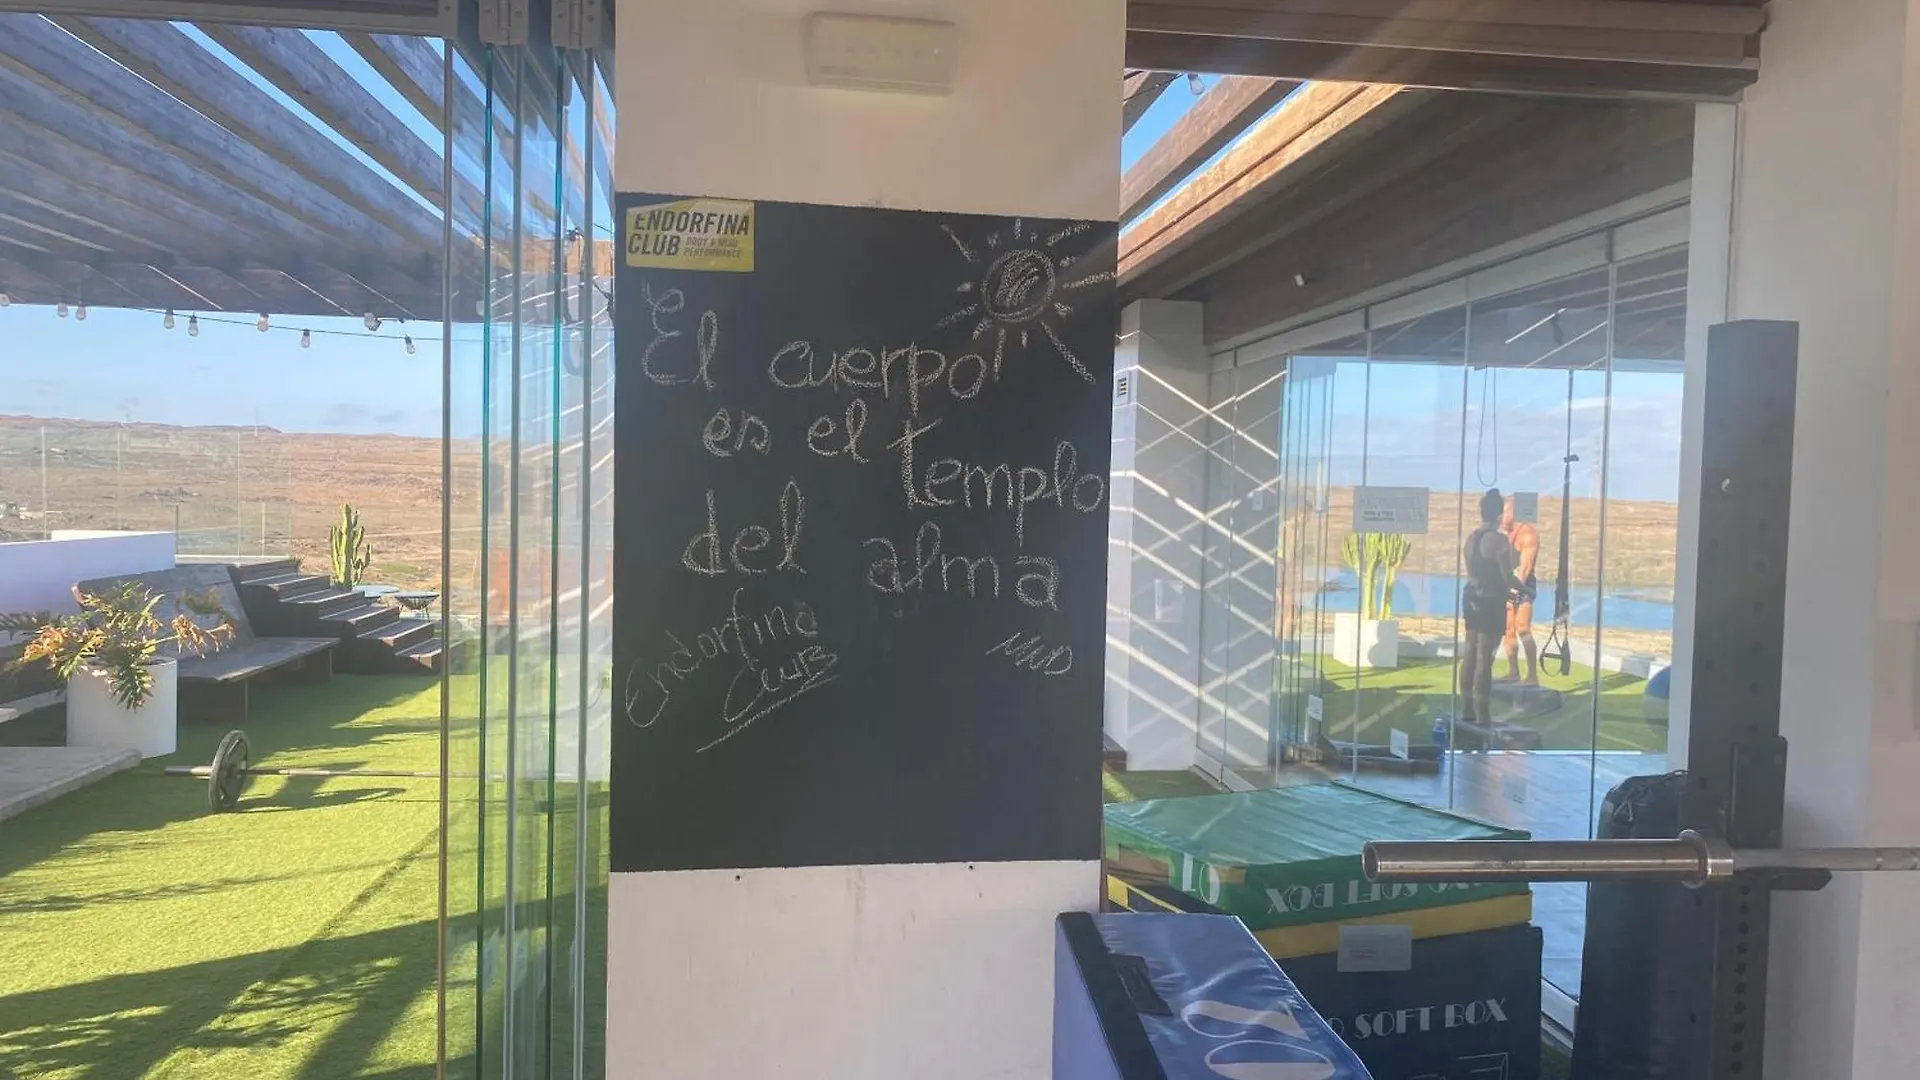 ENDORFINA
CLUB BODY & MIND
PERFORMANCE
El cuerpo
es el templo
del alma
Endorfina
Club
SOFT BOX
SOFT BOX